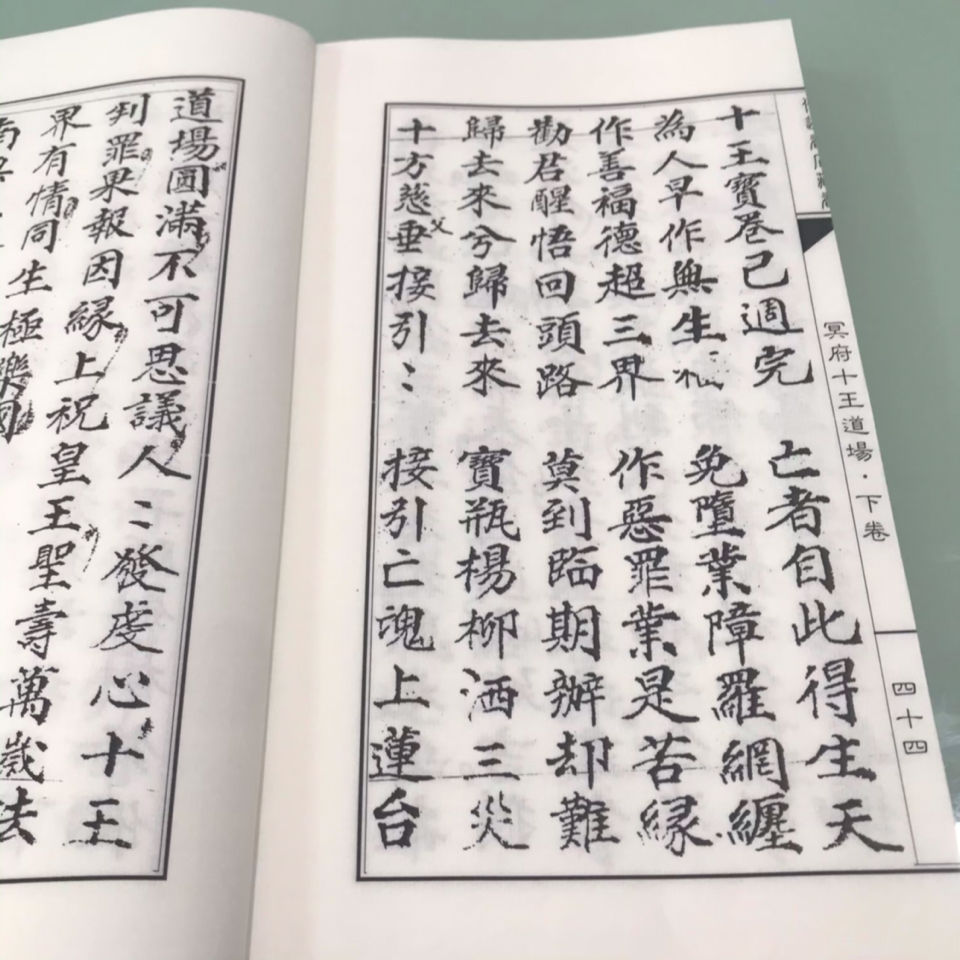 冥府十王道場·下卷
四十四
十王寶卷己週完　亡者自此得生天
為人早作無生　免墮業障羅網纏
作善福德超三界　作惡罪業是苦緣
勸君醒悟回頭路　莫到臨期辦却難
歸去來兮歸去來　寶瓶楊柳洒三災
十方慈父垂接引：　接引亡魂上蓮台
道場圓滿不可思議人：發虔心十王
判罪果報因緣上祝皇王聖壽萬歲法
界有情同生極樂國